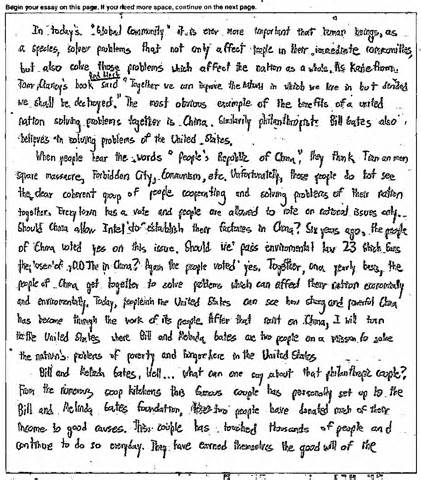 Begin your essay on this page. If you need more space, continue on the next page.
In today's "Global Community" it is ever more important that human beings, as
a species, solve problems that not only affect people in their immediate communities,
but also solve those problems which affect the nation as a whole. As Kate from
Tom Clancy's book Red said "Together we can improve the nation in which we live in but divided
we shall be destroyed." The most obvious example of the benefits of a united
nation solving problems together is China. Similarly philanthropist Bill Gates also
believes in solving problems of the United States.
When people hear the words "People's Republic of China," they think Tiananmen
square massacre, Forbidden City, Communism, etc. Unfortunately, those people do not see
the clear coherent group of people cooperating and solving problems of their nation
together. Every town has a vote and people are allowed to vote on national issues only.
Should China allow Intel to establish their factories in China? Six years ago, the people
of China voted yes on this issue. Should we pass environmental law 23 which bans
the use of in China? Again the people voted yes. Together, on a yearly basis, the
people of China get together to solve problems which can affect their nation economically
and environmentally. Today, people in the United States can see how strong and powerful China
has become through the work of its people. After that point on China, I will turn
to the United States where Bill and Melinda Gates are two people on a mission to solve
the nation's problems of poverty and hunger here in the United States.
Bill and Melinda Gates, Well... what can one say about that philanthropic couple?
From the numerous soup kitchens this famous couple has personally set up to the
Bill and Melinda Gates foundation, these two people have donated much of their
income to good causes. This couple has touched thousands of people and
continue to do so everyday. They have earned themselves the good will of the